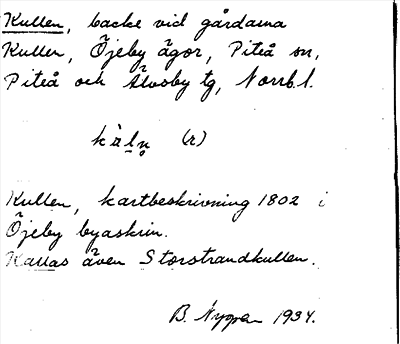 Kullen, backe vid gårdarna
Kullen, Öjeby ägor, Piteå sn,
Piteå och Älvsby tg, Norrb. l.
(r)
Kullen, kartbeskrivning 1802 i
Öjeby byaskrin.
Kallas även Storstrandkullen.
B. Nygren 1934.